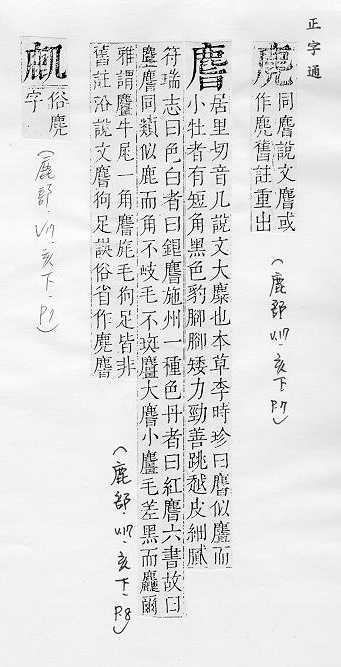 正字通
同𪊨說文𪊨或
作麂舊註重出
(鹿部.V17.亥下.P.7)
𪊨
居里切音几說文大麋也本草李時珍曰𪊨似麞而
小牡者有短角黑色豹腳腳矮力勁善跳越皮細膩
符瑞志曰色白者曰銀𪊨施州一種色丹者曰紅𪊨六書故曰
𪊨同類似鹿而角不岐毛不斑大𪊨小毛差黑而麤爾
雅謂牛尾一角𪊨旄毛狗足皆非
舊註沿說文𪊨狗足誤俗省作麂
(鹿部.V17.亥下.P.8)
俗麂
字
(鹿部.V17.亥下.P.9)